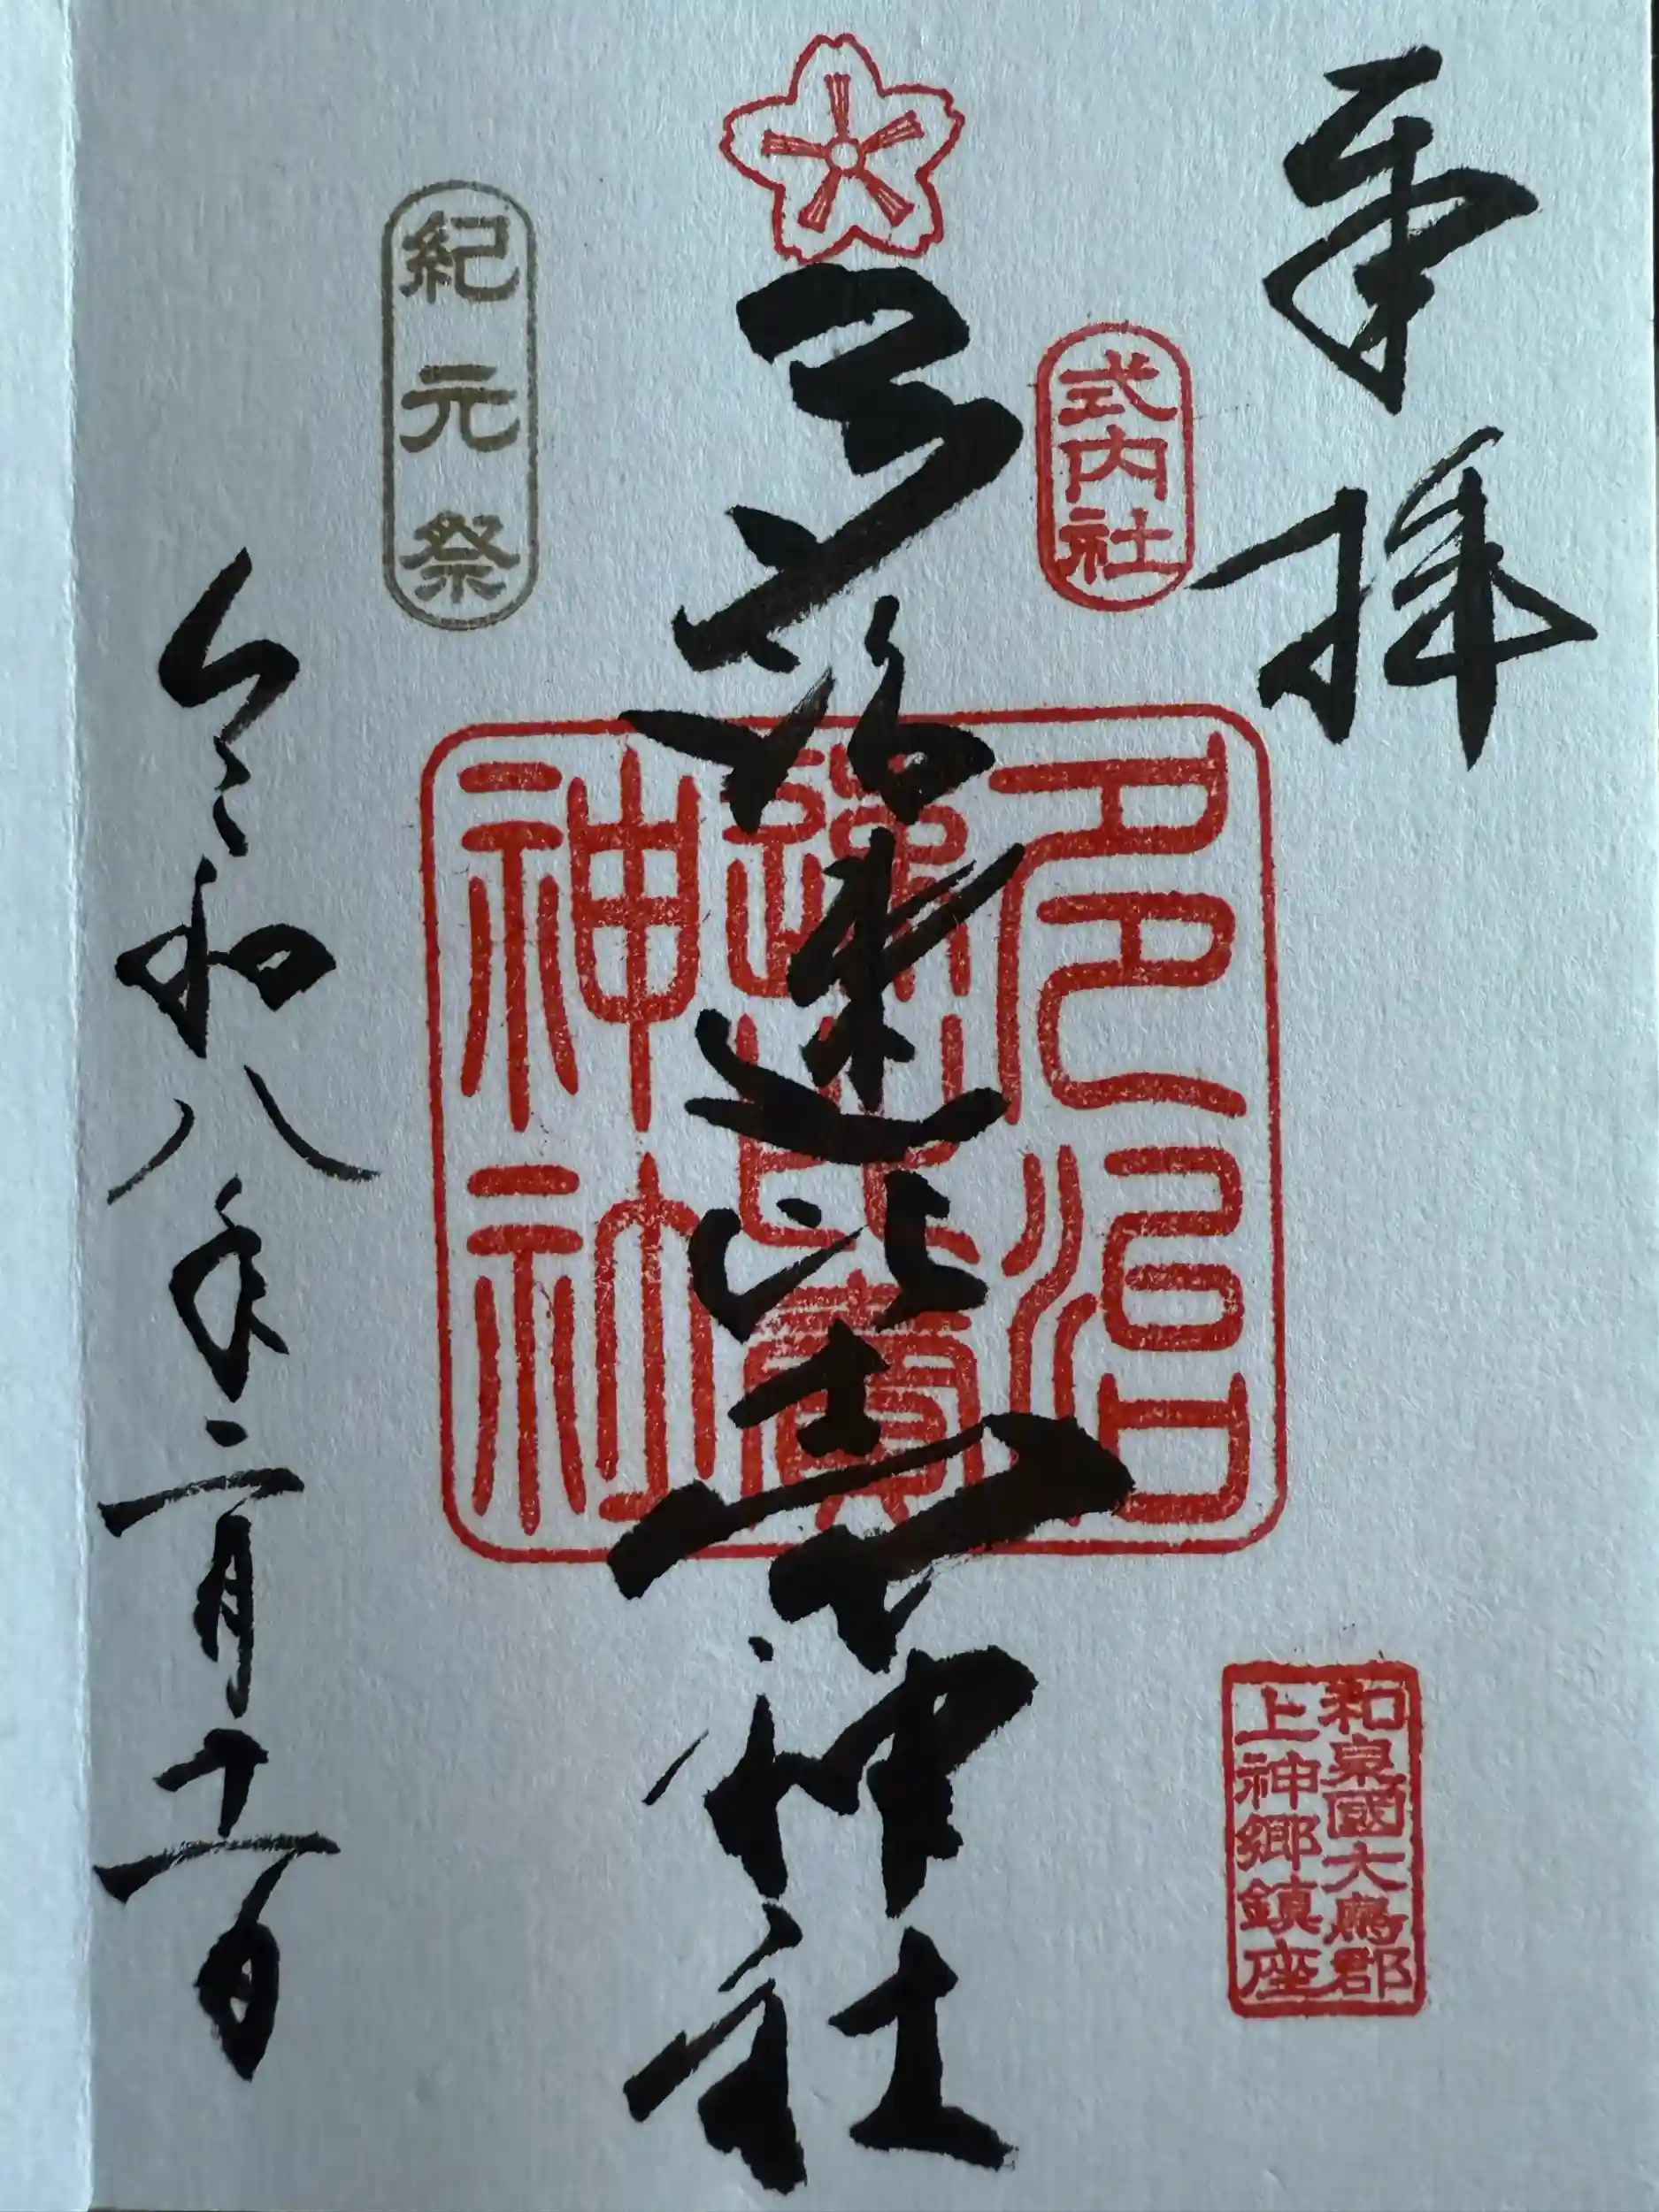 奉拝
式内社
和泉國大鳥郡
上神郷鎮座
多治速比売神社
多治
速比賣
神社
紀元祭
令和八年二月十一日